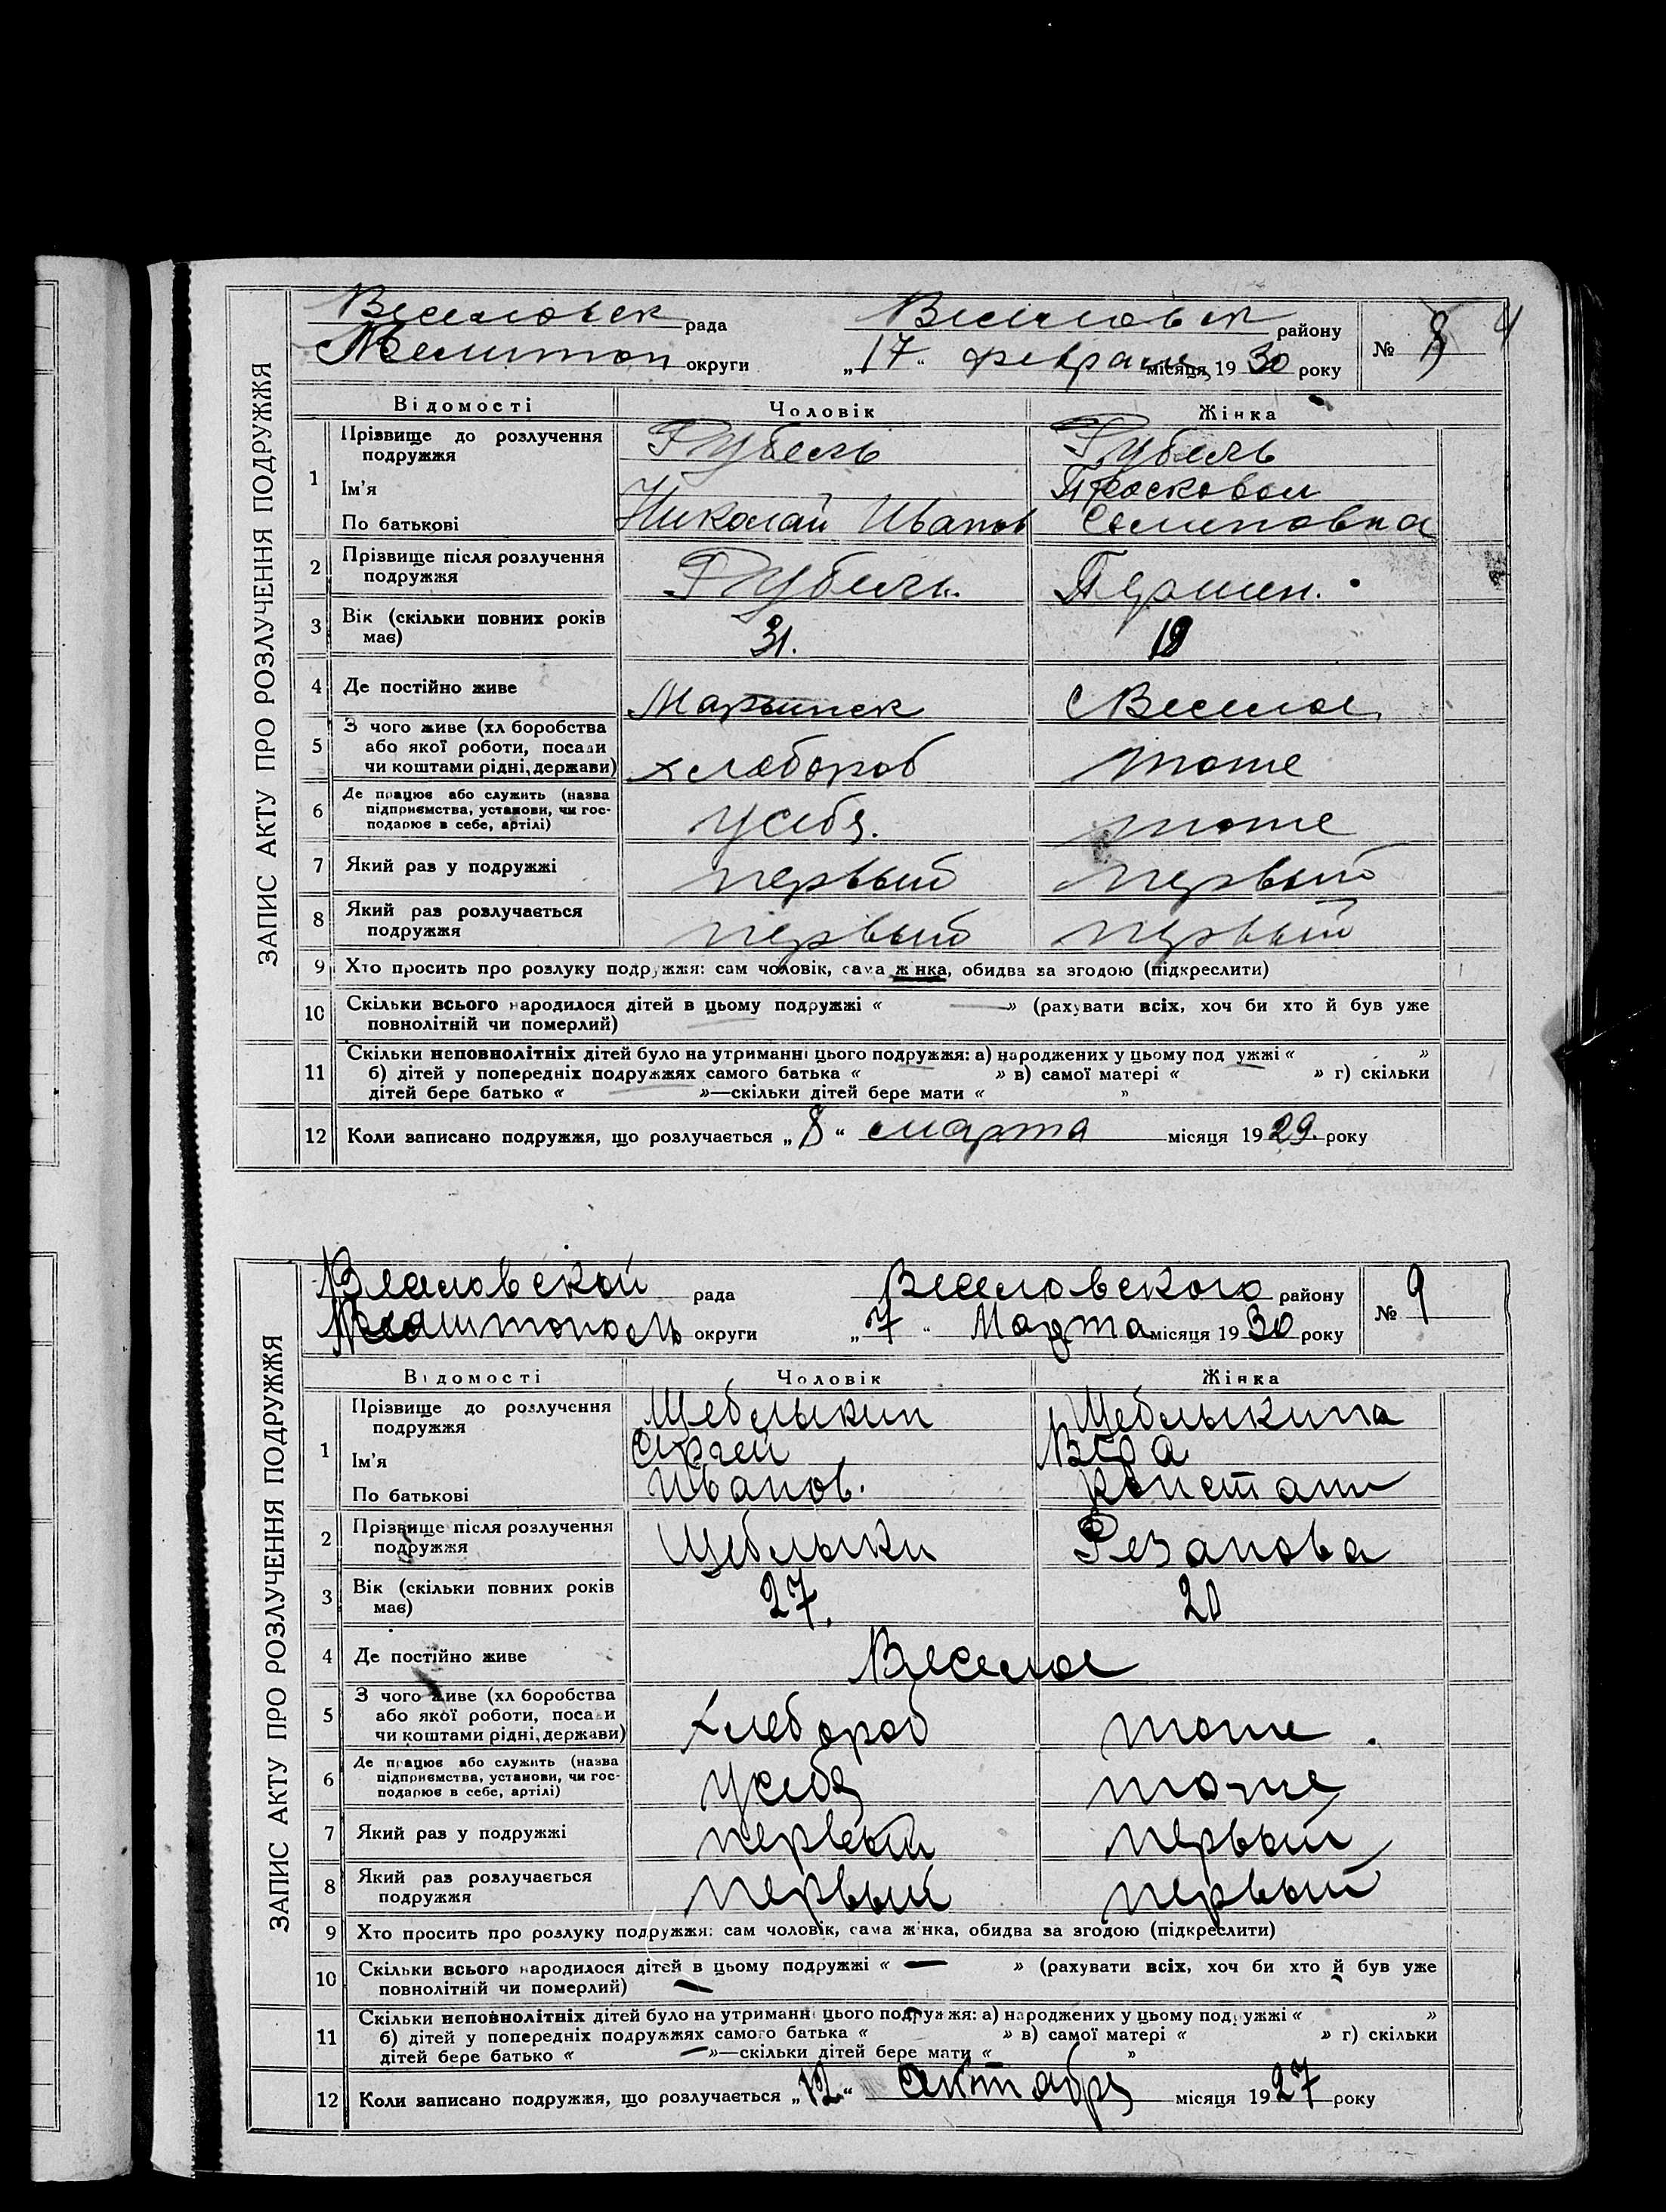 ЗАПИС АКТУ ПРО РОЗЛУЧЕННЯ ПОДРУЖЖЯ
Веселовск рада Веселовск району № 8 4
Мелитоп округи „17“ февраля місяця 1930 року
Відомості Чоловік Жінка
1 Прізвище до розлучення подружжя Рубель Рубель
Ім'я Николай Прасковья
По батькові Иванов Семеновна
2 Прізвище після розлучення подружжя Рубель.
3 Вік (скільки повних років має) 31. 19
4 Де постійно живе с Веселое
5 З чого живе (хліборобства або якої роботи, посади чи коштами рідні, держави) хлебороб тоже
6 Де працює або служить (назва підприємства, установи, чи господарює в себе, артілі) у себя. тоже
7 Який раз у подружжі первый первый
8 Який раз розлучається подружжя первый первый
9 Хто просить про розлуку подружжя: сам чоловік, сама жінка, обидва за згодою (підкреслити)
10 Скільки всього народилося дітей в цьому подружжі « — » (рахувати всіх, хоч би хто й був уже
повнолітній чи померлий)
11 Скільки неповнолітніх дітей було на утриманні цього подружжя: а) народжених у цьому подружжі « »
б) дітей у попередніх подружжях самого батька « » в) самої матері « » г) скільки
дітей бере батько « »—скільки дітей бере мати « »
12 Коли записано подружжя, що розлучається „8“ марта місяця 1929. року
ЗАПИС АКТУ ПРО РОЗЛУЧЕННЯ ПОДРУЖЖЯ
Веселовской рада Веселовского району № 9
округи „7“ Марта місяця 1930 року
Відомості Чоловік Жінка
1 Прізвище до розлучення подружжя Щеблыкин Щеблыкина
Ім'я Сергей Вера
По батькові Иванов. Констант
2 Прізвище після розлучення подружжя Щеблыки Резанова
3 Вік (скільки повних років має) 27. 20
4 Де постійно живе Веселое
5 З чого живе (хліборобства або якої роботи, посади чи коштами рідні, держави) хлебороб тоже.
6 Де працює або служить (назва підприємства, установи, чи господарює в себе, артілі) у себя тоже
7 Який раз у подружжі первый первый
8 Який раз розлучається подружжя первый первый
9 Хто просить про розлуку подружжя: сам чоловік, сама жінка, обидва за згодою (підкреслити)
10 Скільки всього народилося дітей в цьому подружжі « — » (рахувати всіх, хоч би хто й був уже
повнолітній чи померлий) —
11 Скільки неповнолітніх дітей було на утриманні цього подружжя: а) народжених у цьому подружжі « »
б) дітей у попередніх подружжях самого батька « » в) самої матері « » г) скільки
дітей бере батько « — »—скільки дітей бере мати « »
12 Коли записано подружжя, що розлучається „12“ октабря місяця 1927 року